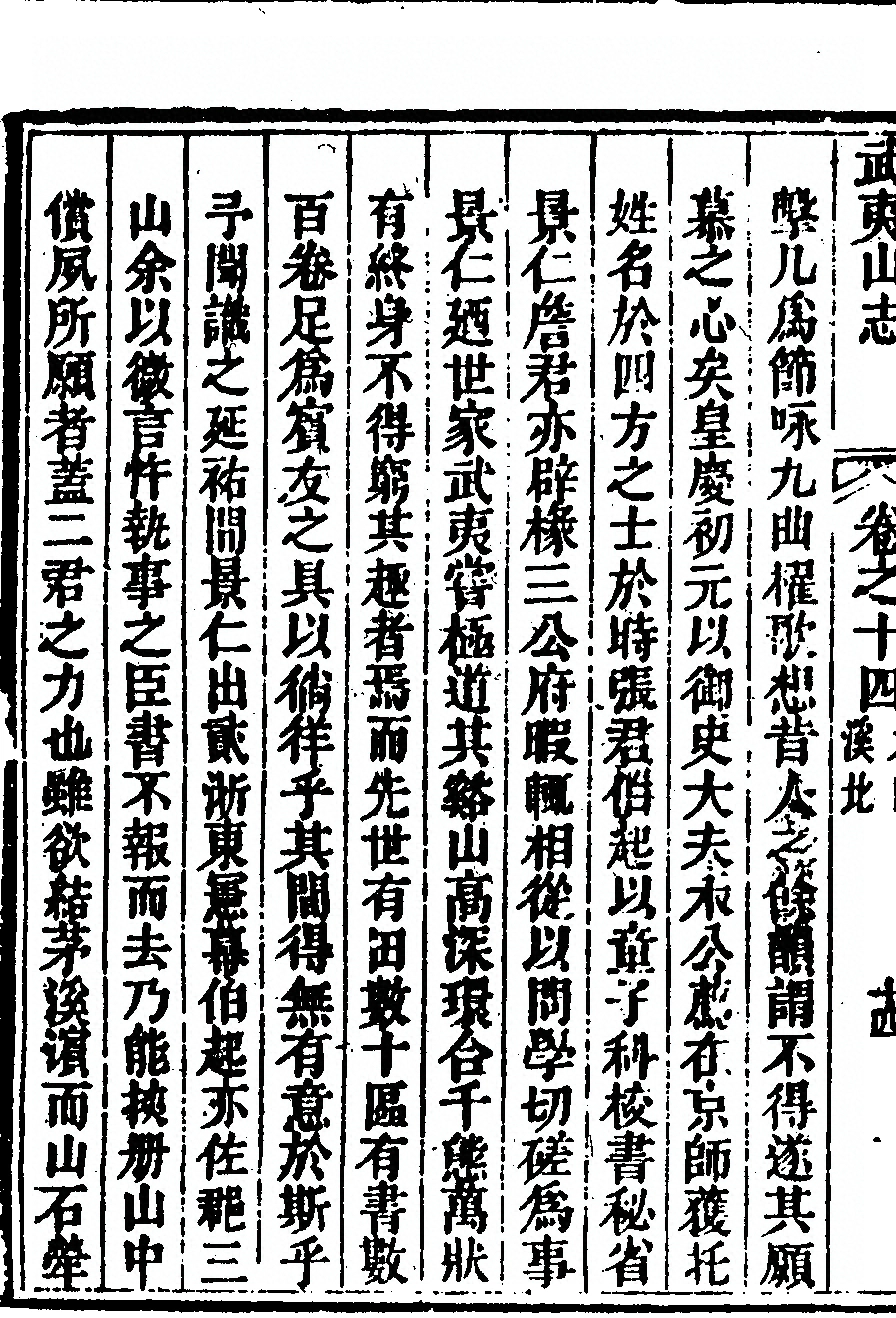 武夷山志
卷之十四
溪北
十四
擊几為節咏九曲櫂歌想昔人之餘韻謂不得遂其願
慕之心矣皇慶初元以御史大夫 公薦在京師獲托
姓名於四方之士於時張君伯起以童子科校書秘省
景仁詹君亦辟椽三公府暇輒相從以問學切磋為事
景仁廼世家武夷嘗極道其谿山高深環合千態萬狀
有終身不得窮其趣者焉而先世有田數十區有書數
百卷足為賓友之具以徜徉乎其間得無有意於斯乎
予聞識之延祐間景仁出貳浙東憲幕伯起亦佐郡三
山余以徵言忤執事之臣書不報而去乃能挾册山中
償夙所願者蓋二君之力也雖欲結茅溪濱而山石犖